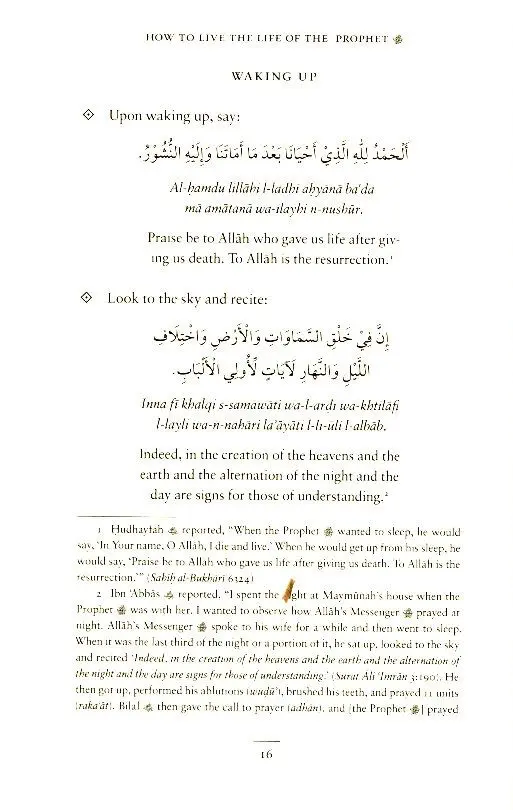 HOW TO LIVE THE LIFE OF THE PROPHET ﷺ
WAKING UP
Upon waking up, say:
أَلْحَمْدُ لِلّٰهِ الَّذِيْ أَحْيَانَا بَعْدَ مَا أَمَاتَنَا وَإِلَيْهِ النُّشُوْرُ.
Al-ḥamdu lillāhi l-ladhi aḥyānā ba'da
mā amātanā wa-ilayhi n-nushūr.
Praise be to Allāh who gave us life after giv-
ing us death. To Allāh is the resurrection.¹
Look to the sky and recite:
إِنَّ فِيْ خَلْقِ السَّمَاوَاتِ وَالْأَرْضِ وَاخْتِلَافِ
اللَّيْلِ وَالنَّهَارِ لَآيَاتٍ لِّأُولِي الْأَلْبَابِ.
Inna fī khalqi s-samawāti wa-l-ardi wa-khtilāfi
l-layli wa-n-nahāri la'āyāti l-li-ūli l-albāb.
Indeed, in the creation of the heavens and the
earth and the alternation of the night and the
day are signs for those of understanding.²
1 Ḥudhayfah reported, "When the Prophet ﷺ wanted to sleep, he would
say, 'In Your name, O Allāh, I die and live.' When he would get up from his sleep, he
would say, 'Praise be to Allāh who gave us life after giving us death. To Allāh is the
resurrection.'" (Sahih al-Bukhari 6324)
2 Ibn 'Abbās reported, "I spent the ght at Maymūnah's house when the
Prophet ﷺ was with her. I wanted to observe how Allāh's Messenger ﷺ prayed at
night. Allāh's Messenger ﷺ spoke to his wife for a while and then went to sleep.
When it was the last third of the night or a portion of it, he sat up, looked to the sky
and recited 'Indeed, in the creation of the heavens and the earth and the alternation of
the night and the day are signs for those of understanding.' (Surat Āli 'Imrān 3:190). He
then got up, performed his ablutions (wuḍū'), brushed his teeth, and prayed 11 units
(raka'āt). Bilal then gave the call to prayer (adhān), and [the Prophet ﷺ] prayed
16